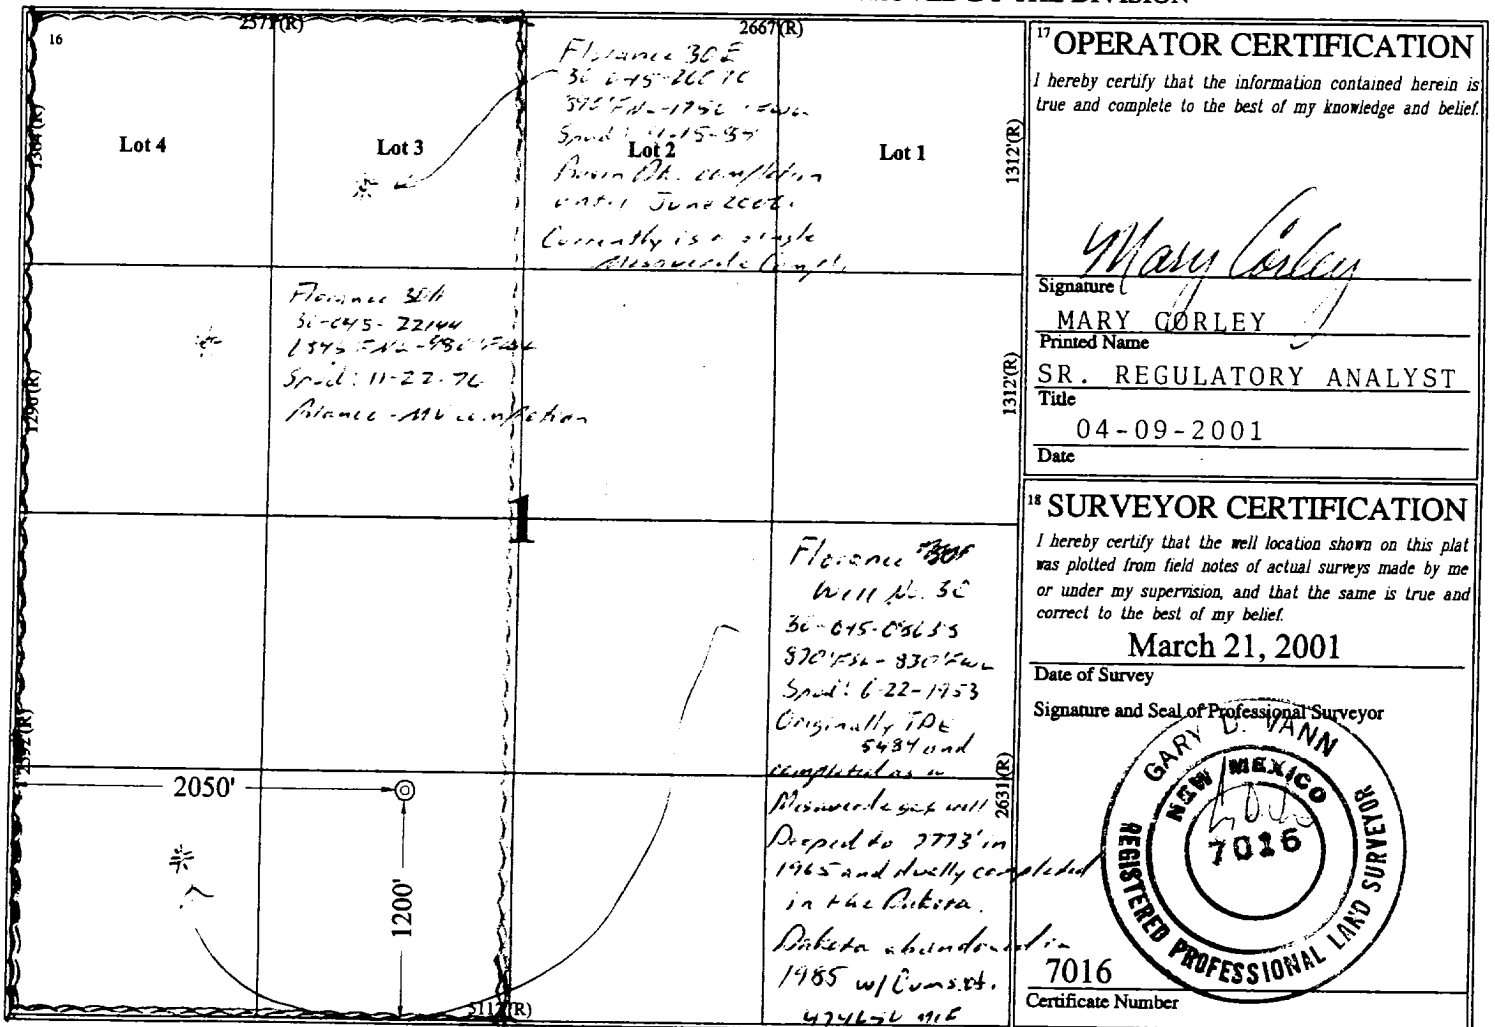 THE DIVISION
16
2571'(R)
2667'(R)
Lot 4
Lot 3
Lot 2
Lot 1
1312'(R)
Florance 30E
Spud:
completion
until June
Currently is a single
Mesaverde Compl.
Florance
30-045-22144
Spud: 11-22-76
completion
1290'(R)
1312'(R)
1
Florance
Well No. 30
Spud: 6-22-1953
Originally
5484 and
completed as a
Mesaverde gas well
to 7773' in
1965 and dually completed
in the Dakota.
Dakota abandoned in
1985 w/
2392'(R)
2631'(R)
2050'
1200'
5112'(R)
17 OPERATOR CERTIFICATION
I hereby certify that the information contained herein is
true and complete to the best of my knowledge and belief.
Mary Corley
Signature
MARY CORLEY
Printed Name
SR. REGULATORY ANALYST
Title
04-09-2001
Date
18 SURVEYOR CERTIFICATION
I hereby certify that the well location shown on this plat
was plotted from field notes of actual surveys made by me
or under my supervision, and that the same is true and
correct to the best of my belief.
March 21, 2001
Date of Survey
Signature and Seal of Professional Surveyor
GARY D. VANN
NEW MEXICO
7016
REGISTERED PROFESSIONAL LAND SURVEYOR
7016
Certificate Number